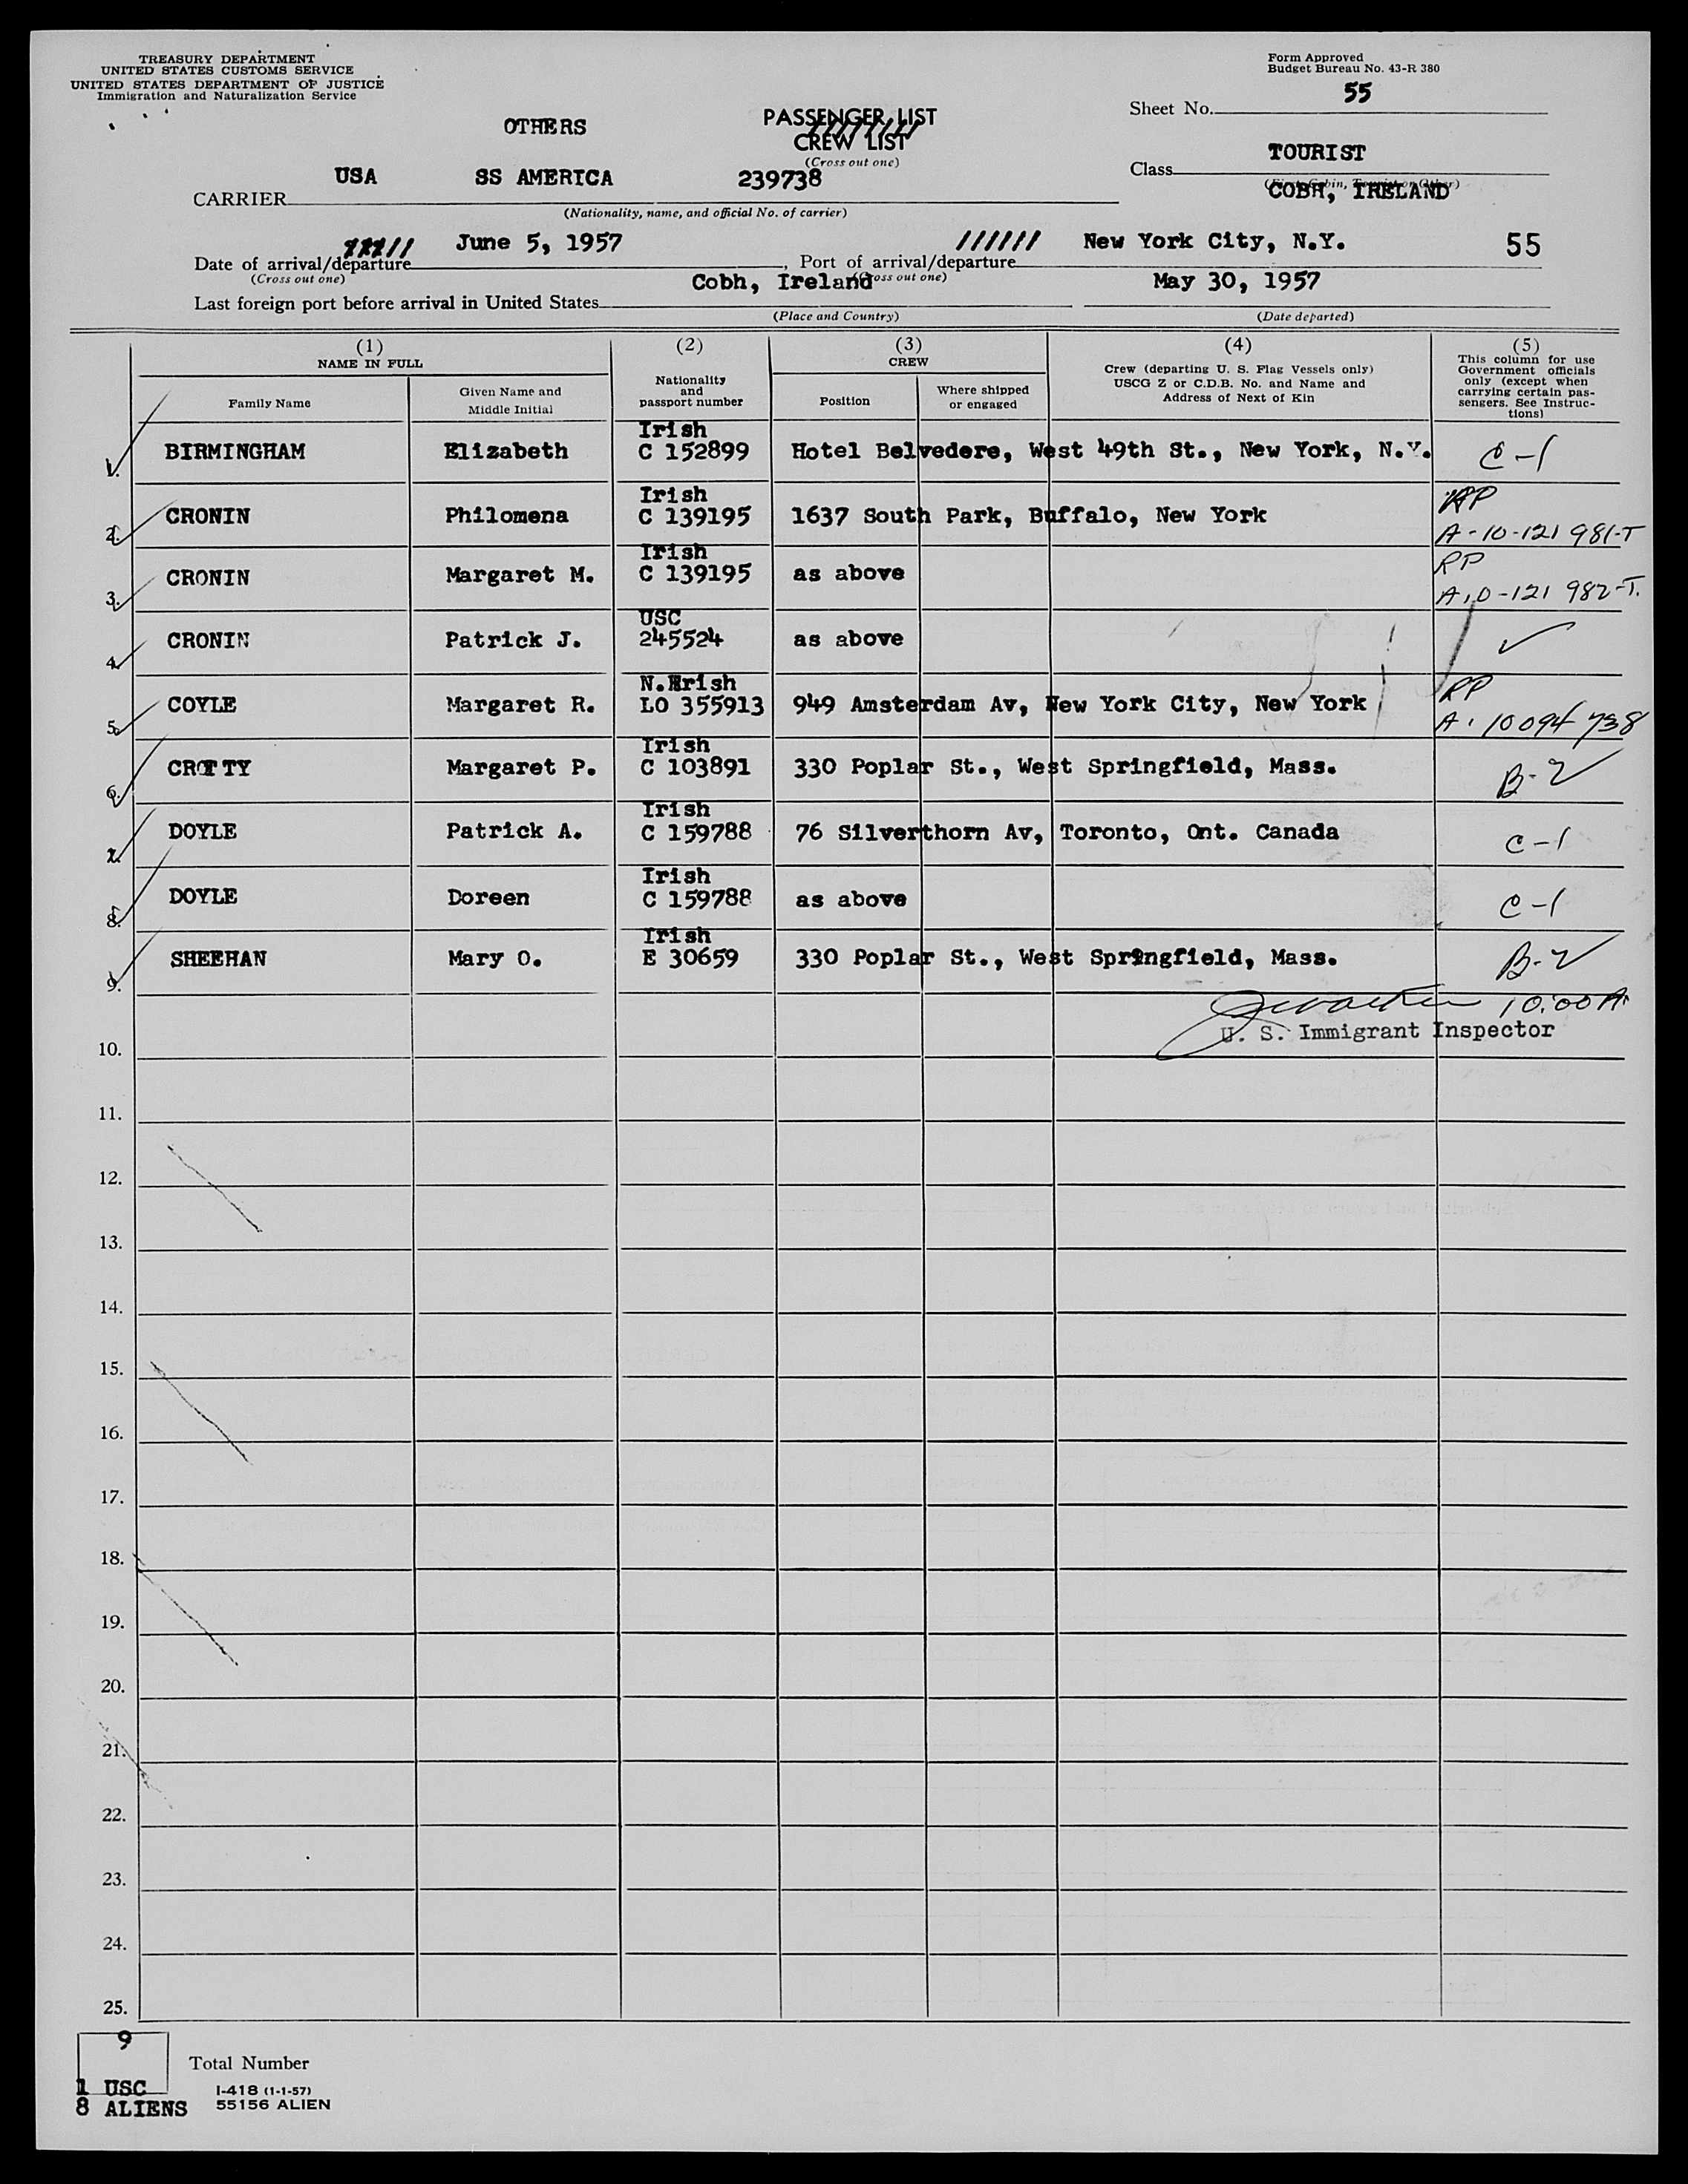 TREASURY DEPARTMENT
UNITED STATES CUSTOMS SERVICE
UNITED STATES DEPARTMENT OF JUSTICE
Immigration and Naturalization Service
Form Approved
Budget Bureau No. 43-R 380
Sheet No. 55
OTHERS
PASSENGER LIST
CREW LIST
(Cross out one)
Class TOURIST
(First, Cabin, Tourist or Other)
COBH, IRELAND
CARRIER USA SS AMERICA 239738
(Nationality, name, and official No. of carrier)
Date of arrival/departure June 5, 1957, Port of arrival/departure New York City, N.Y. 55
(Cross out one) (Cross out one)
Last foreign port before arrival in United States Cobh, Ireland May 30, 1957
(Place and Country) (Date departed)
(1) (2) (3) (4) (5)
NAME IN FULL
Family Name
Given Name and Middle Initial
Nationality and passport number
CREW
Position
Where shipped or engaged
Crew (departing U. S. Flag Vessels only)
USCG Z or C.D.B. No. and Name and
Address of Next of Kin
This column for use
Government officials
only (except when
carrying certain pas-
sengers. See Instruc-
tions)
Irish
1. BIRMINGHAM Elizabeth C 152899 Hotel Belvedere, West 49th St., New York, N.Y. C-1
Irish RP
2. CRONIN Philomena C 139195 1637 South Park, Buffalo, New York A-10-121 981-T
Irish RP
3. CRONIN Margaret M. C 139195 as above A10-121 982-T.
USC
4. CRONIN Patrick J. 245524 as above
N.Irish RP
5. COYLE Margaret R. LO 355913 949 Amsterdam Av, New York City, New York A. 10094 738
Irish
6. CROTTY Margaret P. C 103891 330 Poplar St., West Springfield, Mass. B-2
Irish
7. DOYLE Patrick A. C 159788 76 Silverthorn Av, Toronto, Ont. Canada C-1
Irish
8. DOYLE Doreen C 159788 as above C-1
Irish
9. SHEEHAN Mary O. E 30659 330 Poplar St., West Springfield, Mass. B-2
10:00 A
U. S. Immigrant Inspector
10.
11.
12.
13.
14.
15.
16.
17.
18.
19.
20.
21.
22.
23.
24.
25.
9
Total Number
1 USC
8 ALIENS
I-418 (1-1-57)
55156 ALIEN